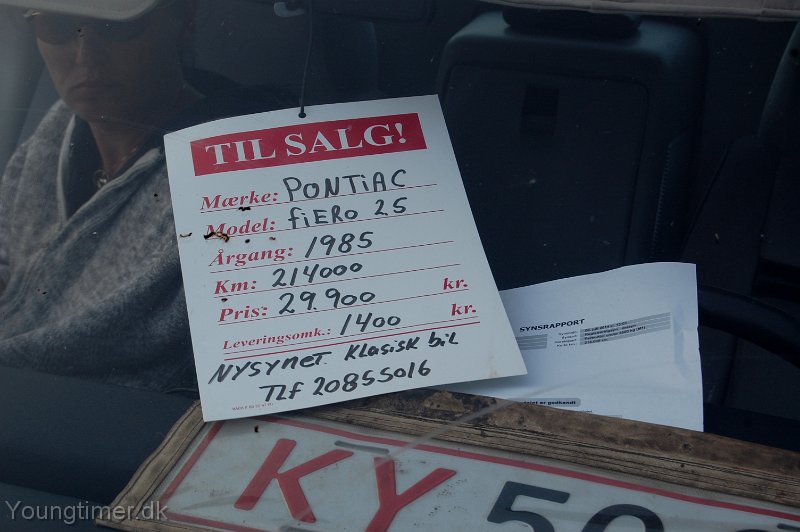 TIL SALG!
Mærke: PONTIAC
Model: fiERO 2.5
Årgang: 1985
Km: 214000
Pris: 29.900 kr.
Leveringsomk.: 1400 kr.
NYSYNET. KLASISK biL
Tlf 20855016
SYNSRAPPORT
er godkendt
KY 50
Youngtimer.dk